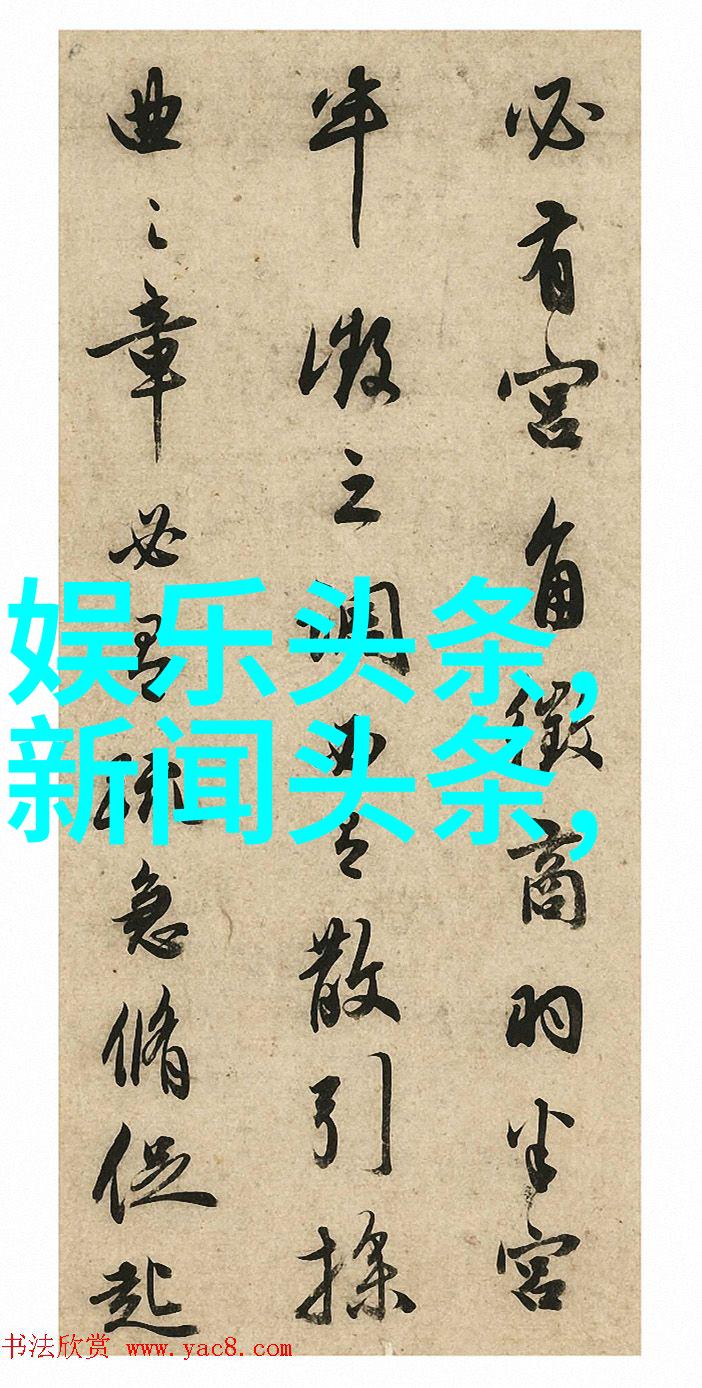 必有宮角徵商羽半宮
半徵之調必有散引操
曲之章必有疏急脩促起
娱乐头条,
新闻头条,
书法欣赏 www.yac8.com